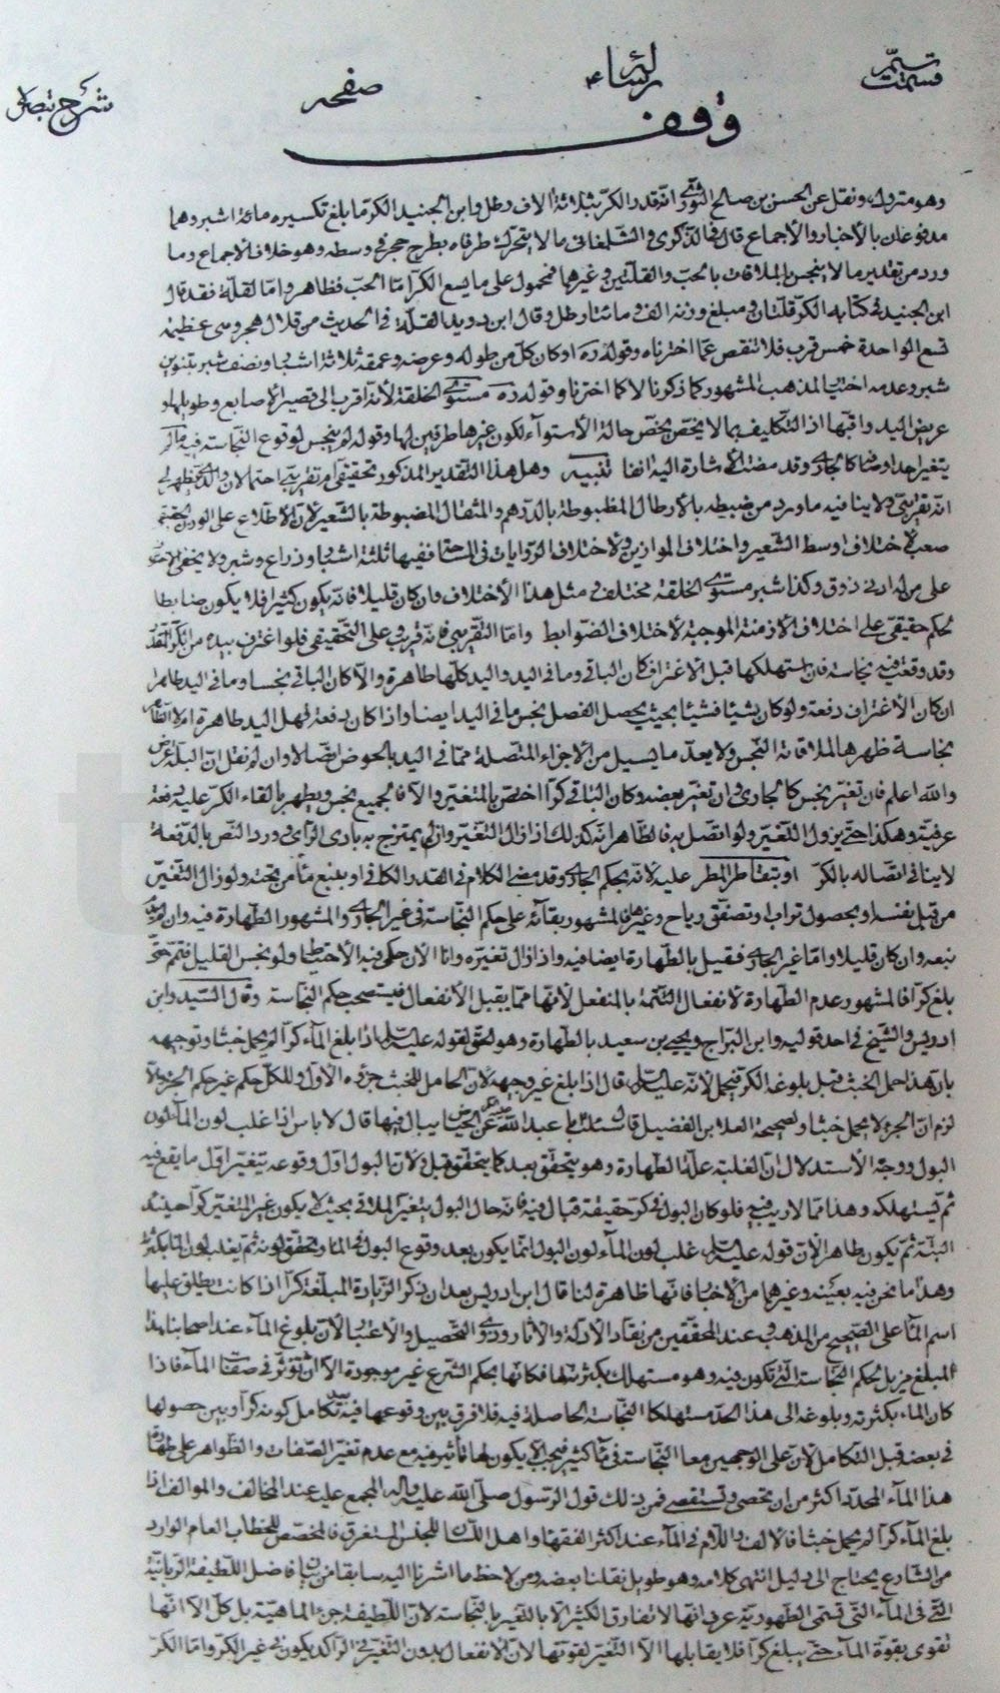 صفحه
شرح تبصره
وقف
وهو متروك ونقل عن الحسن بن صالح الثوري انه قدر الكر بثلاثة الاف رطل وابن الجنيد الكر ما بلغ تكسيره مائة اشبر وهما
مدفوعان بالأخبار والأجماع قال في الذكرى والشلمغاني ما لا يتحرك طرفاه بطرح حجر في وسطه وهو خلاف الأجماع وما
ورد من تقدير ما لا ينجس بالملاقات بالحب والقلتين وغيرها فمحمول على ما يسع الكر اما الحب فظاهر واما القلة فقد قال
ابن الجنيد في كتابه الكر قلتان ومبلغ وزنه الف ومائتا رطل وقال ابن دريد القلة في الحديث من قلال هجر وهي عظيمة
تسع الواحدة خمس قرب فلا تنقص عما اخترناه وقوله ره او كان كل من طوله وعرضه وعمقه ثلاثة اشبار ونصف شبر بتنوين
شبر وعدمه اختيار المذهب المشهور كما ذكرنا لا كما اخترنا وقوله ره مستوى الخلقة لأنه اقرب الى قصير الأصابع وطويلها و
عريض اليد اذ التكليف بما لا يختص يخص حالة الأستوآء لكون غيرها طرفين لها وقوله لم ينجس لوقوع النجاسة فيه ما لم
يتغير احد اوصافه كالجارى وقد مضت الأشارة اليه انفا تنبيه وهل هذا التقدير المذكور تحقيقى ام تقريبى احتمالان والذى يظهر لى
انه تقريبى ولا ينافيه ما ورد من ضبطه بالأرطال المظبوطة بالدرهم والمثقال المضبوطة بالشعير لأن الأطلاع على الوزن
صعب لأختلاف اوسط الشعير واختلاف الموازين ولأختلاف الروايات في المساحة ففيها ثلثة اشبار وذراع وشبر ولا يخفى
على من له ادنى ذوق وكذا شبر مستوى الخلقة مختلف في مثل هذا الأختلاف وان كان قليلا فانه يكون كثيرا فلا يكون ضابطا
لحكم حقيقى على اختلاف الأزمنة الموجبة لأختلاف الضوابط واما التقريبى فانه قريب وعلى التحقيقى فلو اغترف بيده من الكر
وقد وقعت فيه نجاسة فان استهلكها قبل الأغتراف كان الباقى وما في اليد واليد كلها طاهرة والا كان الباقى نجسا وما في اليد طاهرا
ان كان الأغتراف دفعة ولو كان شيئا فشيئا بحيث يحصل الفصل نجس ما في اليد ايضا واذا كان دفعة فهل اليد طاهرة ام لا
نجاسة ظهرها لملاقاته النجس ولا يعد ما يسيل من الأجزاء المتصلة مما في اليد بالحوض اتصالا وان لم نقل ان البلة
والله اعلم فان تغير نجس كالجارى وان تغير بعضه وكان الباقى كرا اختص بالمتغير والا فالجميع نجس ويطهر بالقاء الكر عليه دفعة
عرفية وهكذا حتى يزول التغير ولو اتصل به فالظاهر انه كذلك اذا زال التغير وان لم يمتزج به بادى الرأى وورد النص بالدفعة
لا ينافى اتصاله بالكر او بتقاطر المطر عليه لأنه بحكم الجارى وقد مضى الكلام في القدر الكافى او بنبع ماء من تحته ولو زال التغير
من قبل نفسه او بحصول تراب او تصفق رياح وغيرها فالمشهور بقائه على حكم النجاسة في غير الجارى والمشهور الطهارة فيه وان
نبعه وان كان قليلا واما غير الجارى فقيل بالطهارة ايضا فيه واذا زال تغيره وانا الآن حكمى فيه الأحتياط ولو نجس القليل فتمم حتى
بلغ كرا فالمشهور عدم الطهارة لانفعال التتمة بالمنفعل لأنها مما يقبل الأنفعال فيستصحب حكم النجاسة وقال السيد وابن
ادريس والشيخ في احد قوليه وابن البراج ويحيى بن سعيد بالطهارة وهو الحق لقوله عليه السلام اذا بلغ المآء كرا لم يحمل خبثا وتوجيهه
بان هذا حمل الخبث قبل بلوغه الكر فيحمل لأنه عليه السلام قال اذا بلغ غير وجيه لأن الحامل للخبث جزؤه الأول وللكل حكم غير حكم الجزء والا
لزم ان الجزء لا يحمل خبثا ولصحيحة العلا بن الفضيل قال سئلت ابا عبد الله عن الحياض يبال فيها قال لا باس اذا غلب لون المآء لون
البول ووجه الأستدلال ان الغلبة علة الطهارة وهو يتحقق بعد كما يتحقق قبل ولأن البول اول وقوعه يتغير اول ما يقع فيه
ثم يستهلكه وهذا مما لا ريب فيه فلو كان البول في كر حقيقة فبال فيه فانه حال البول يتغير الملاقى بحيث لا يكون غير المتغير كرا حينئذ
البتة ثم يكون طاهرا لأن قوله عليه السلام غلب لون المآء لون البول انما يكون بعد وقوع البول في المآء وتحقق لونه ثم يغلب لون المآء بكثرته
وهذا ما نحن فيه بعينه وغيرهما من الأخبار فانها ظاهرة لنا قال ابن ادريس بعد ان ذكر الزيادة المبلغة كرا اذا كانت يطلق عليها
اسم المآء على الصحيح من المذهب وعند المحققين من نقاد الأدلة والأثار وذوى التحصيل والأعتبار لأن بلوغ المآء عند اصحابنا هذا
المبلغ مزيل لحكم النجاسة التى تكون فيه وهو مستهلك بكثرته لها فكأنها بحكم الشرع غير موجودة الا ان تؤثر في صفات المآء فاذا
كان المآء بكثرته وبلوغه الى هذا الحد مستهلكا النجاسة الحاصلة فيه فلا فرق بين وقوعها فيه بعد تكامل كونه كرا وبين حصولها
في بعضه قبل التكامل لأن على الوجهين معا النجاسة في ماء كثير فيجب الا يكون لها تأثير فيه مع عدم تغير الصفات والظواهر على طهارة
هذا المآء المحدد اكثر من ان تحصى وتستقصى فمن ذلك قول الرسول صلى الله عليه وآله المجمع عليه عند المخالف والموالف اذا
بلغ المآء كرا لم يحمل خبثا فالالف واللام في المآء عند اكثر الفقهآء واهل اللسان للجنس المستغرق فالمخصص للخطاب العام الوارد
من الشارع يحتاج الى دليل انتهى كلامه وهو طويل نقلنا بعضه ومن لاحظ ما اشرنا اليه سابقا من بيان فاضل اللطيفة الربانية
التى في المآء التى تسمى الطهورية عرف انها لا تفارق الكثير الا بالتغير بالنجاسة لأن اللطيفة جزء الماهية بل كل الا انها
تقوى بقوة المآء حتى يبلغ كرا فلا يقابلها الا التغير لقوتها لأن الأنفعال بدون التغير في الراكد يكون في غير الكر واما الكر